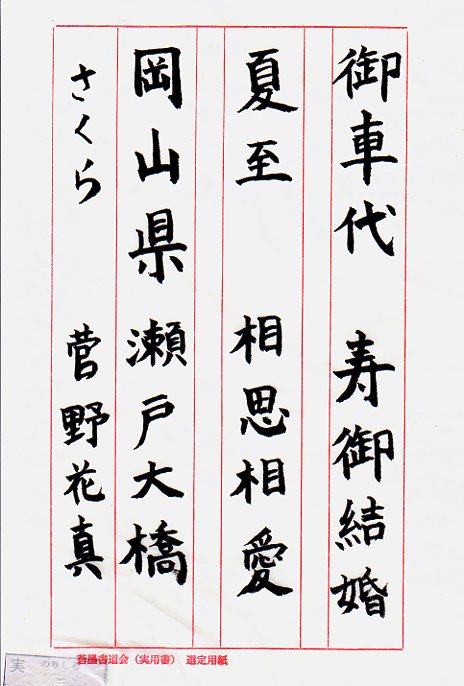 御車代 寿御結婚
夏至 相思相愛
岡山県 瀬戸大橋
さくら 菅野花真
蒼墨書道会（実用書） 選定用紙
実 のりしろ